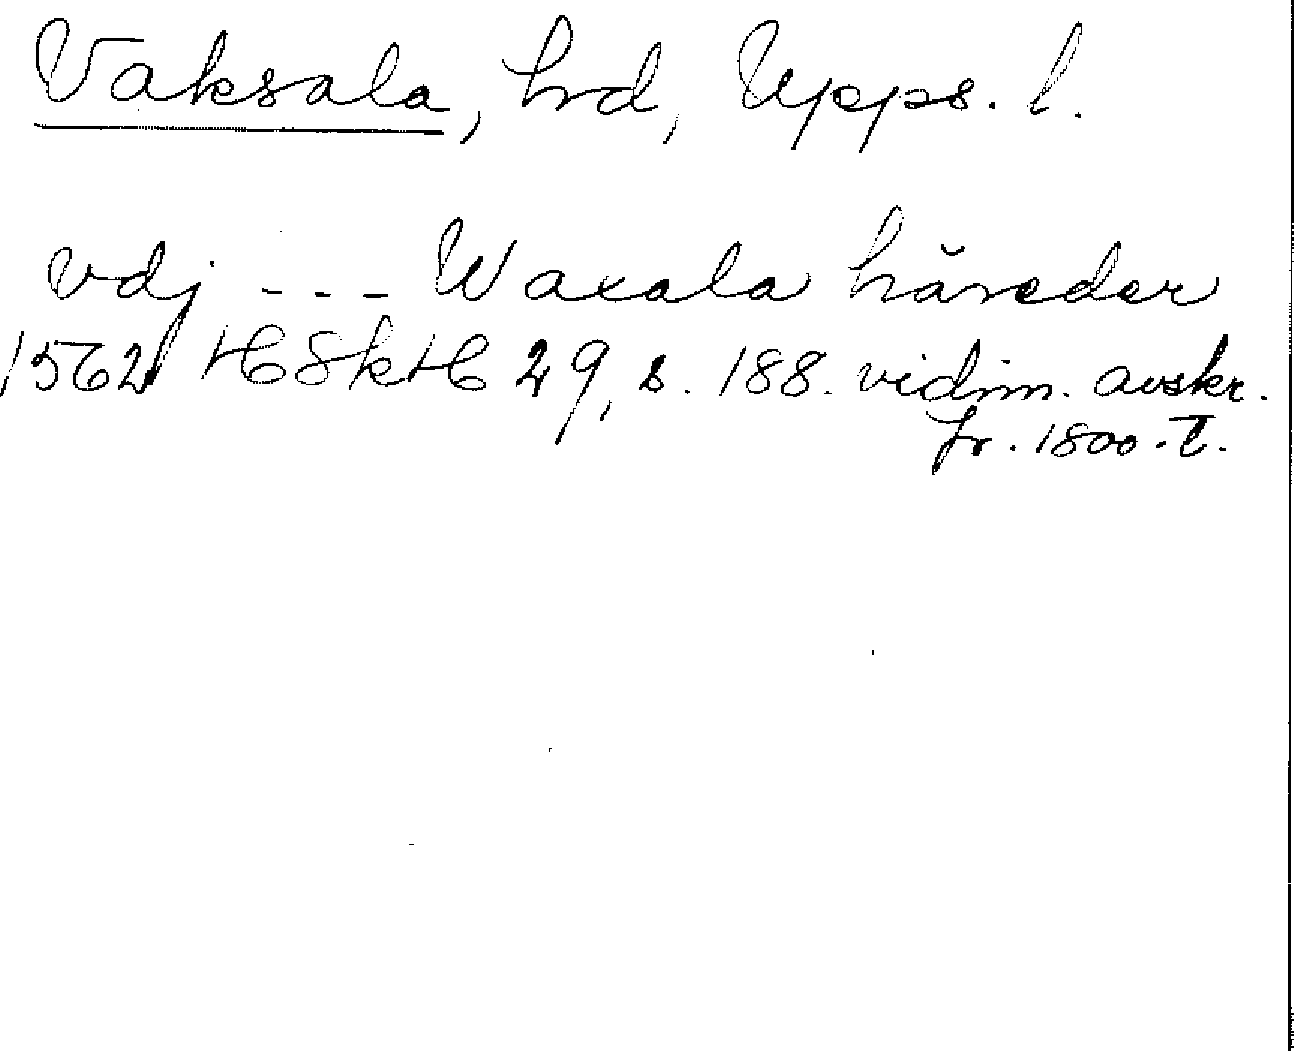 Vaksala, hrd, Upps. l.
vdj --- Waxala håreder
1562 HSkH 29, s. 188. vidim. avskr.
fr. 1800-t.